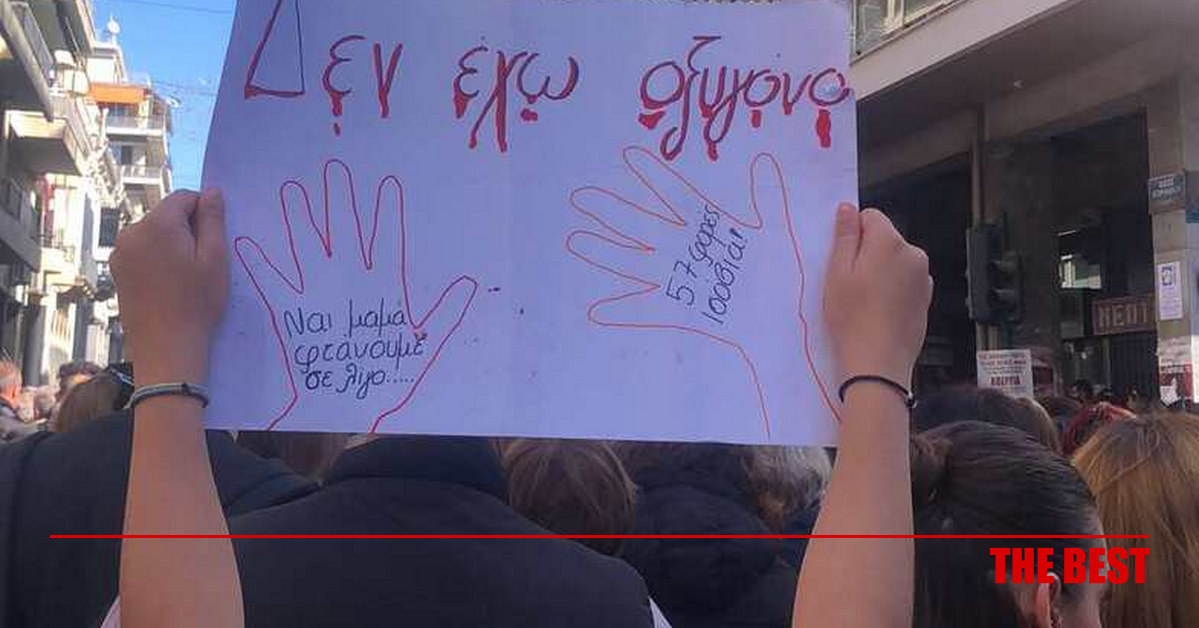 Δεν έχω οξυγόνο
Ναι μαμά
φτάνουμε
σε λίγο.....
57 φορές
ισόβια!
ΝΕΟΤ
THE BEST